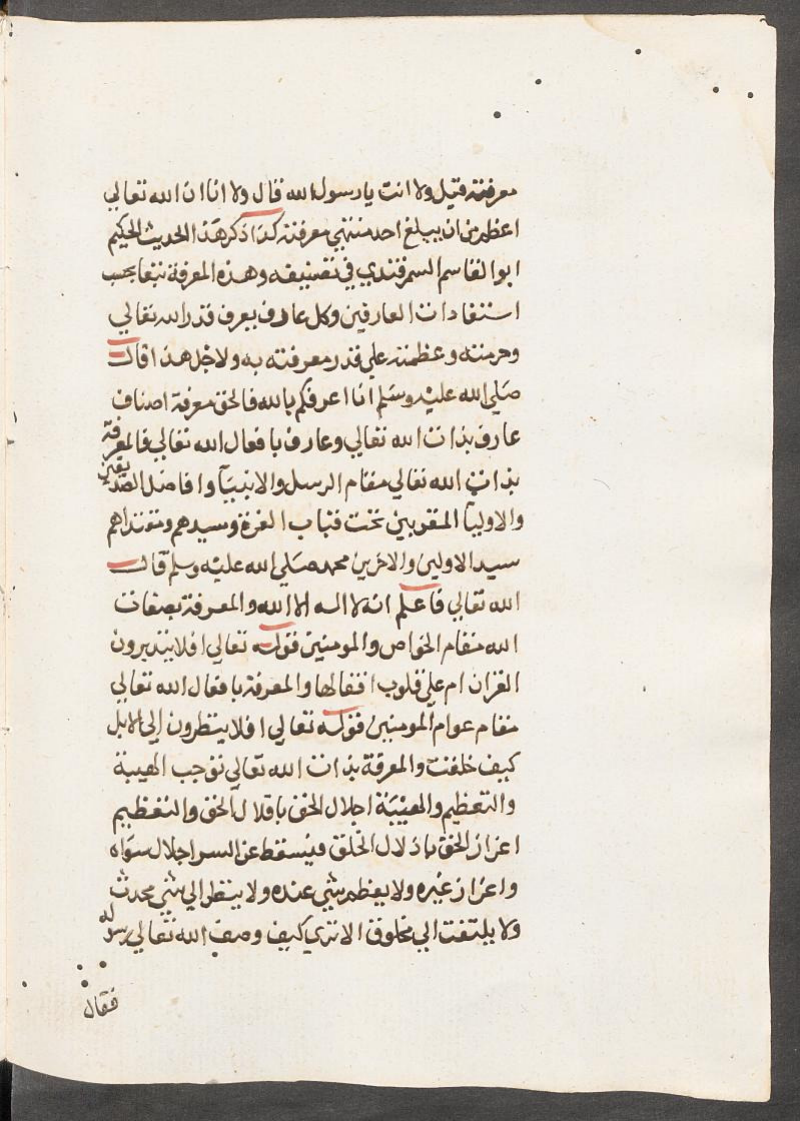 معرفته قيل ولا انت يا رسول الله قال ولا انا ان الله تعالي
اعظم من ان يبلغ احد منتهي معرفته كذا ذكر هذا الحديث الحكيم
ابو القاسم السمرقندي في تصنيفه وهذه المعرفة تقع بحسب
استفادات العارفين وكل عارف يعرف قدر الله تعالي
وحرمته وعظمته علي قدر معرفته به ولاجل هذا قال
صلي الله عليه وسلم انا اعرفكم بالله فالحق معرفة اصناف
عارف بذات الله تعالي وعارف بافعال الله تعالي فالمعرفة
بذات الله تعالي مقام الرسل والانبيآ وافاضل الصديقين
والاوليآ المقربين تحت قباب العزة وسيدهم ومقتداهم
سيد الاولين والاخرين محمد صلي الله عليه وسلم قال
الله تعالي فاعلم انه لا اله الا الله والمعرفة بصفات
الله مقام الخواص والمومنين قوله تعالي افلا يتدبرون
القران ام علي قلوب اقفالها والمعرفة بافعال الله تعالي
مقام عوام المومنين قوله تعالي افلا ينظرون الي الابل
كيف خلقت والمعرفة بذات الله تعالي توجب الهيبة
والتعظيم والهيبة اجلال الحق باقلال الحق والتعظيم
اعزاز الحق باذلال الخلق فيسقط عن السر اجلال سواه
واعزاز غيره ولا يعظم شي عنده ولا ينظر الي شي محدث
ولا يلتفت الي مخلوق الا تري كيف وصف الله تعالي رسوله
فقال